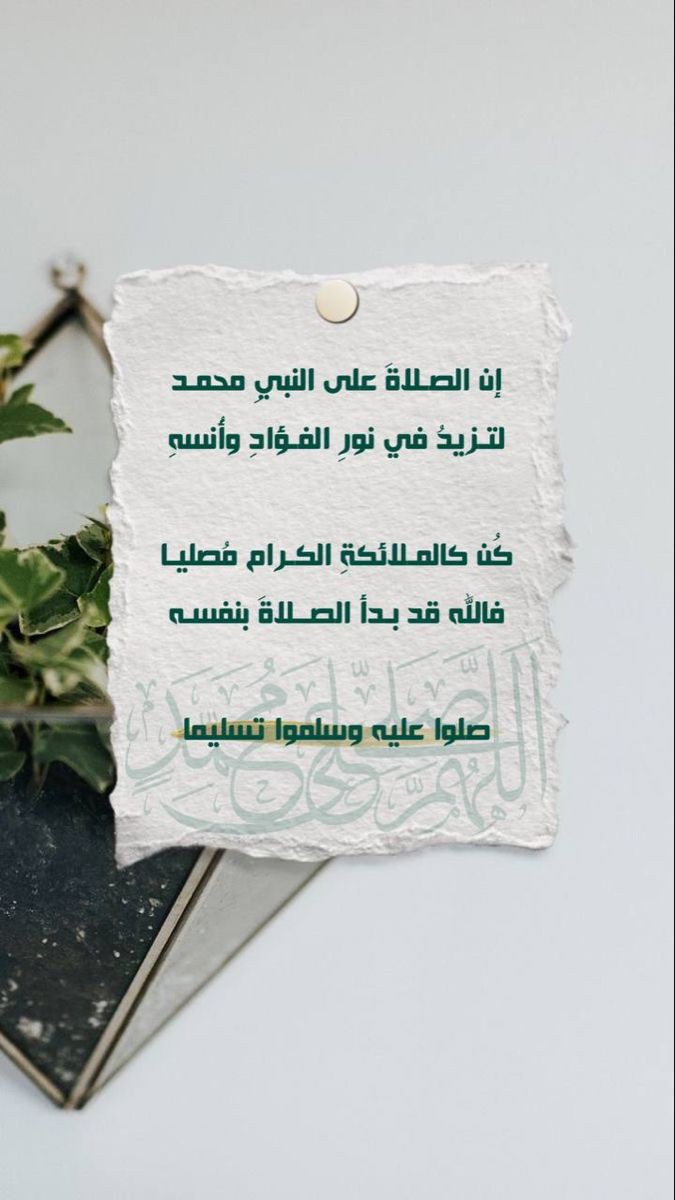 إن الصلاةَ على النبيِ محمد
لتزيدُ في نورِ الفؤادِ وأُنسهِ
كُن كالملائكةِ الكرام مُصليا
فالله قد بدأ الصلاةَ بنفسه
صلوا عليه وسلموا تسليما
اللهم صل على محمد